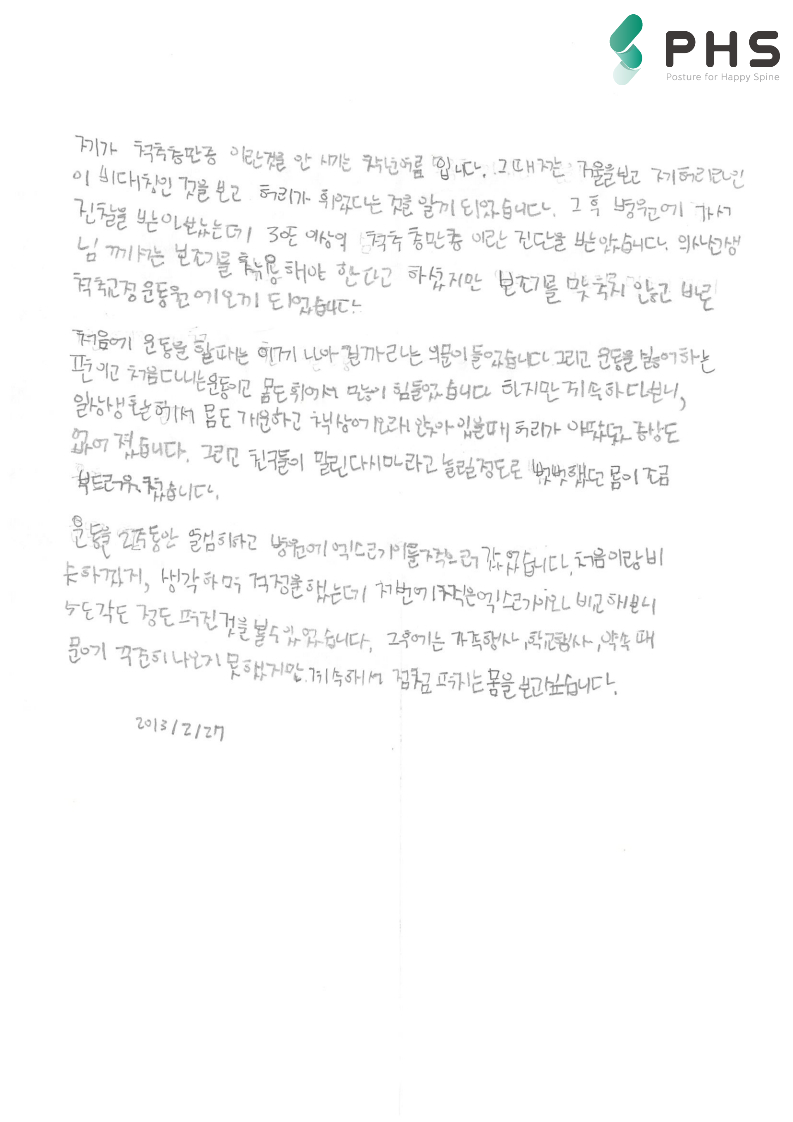 PHS
Posture for Happy Spine
제가 척추측만증 이란것을 안 시기는 작년여름 입니다. 그때 저는 거울을보고 제허리라인
이 비대칭인 것을 보고 허리가 휘었다는 것을 알게 되었습니다. 그 후 병원에 가서
진찰을 받아보았는데 3도 이상의 척추측만증 이란 진단을 받았습니다. 의사선생
님 께서는 보조기를 착용해야 한다고 하셨지만 보조기를 맞추지 않고 바로
척추교정운동원에오게 되었습니다.
처음에 운동을 할때는 언제 나아 질까라는 의문이들었습니다 그리고 운동을 싫어하는
편이고 처음다니는운동이고 몸도휘어서 많이 힘들었습니다 하지만 계속하다보니,
일상생활에서 몸도 개운하고 책상에오래 앉아 있을때 허리가 아팠던 증상도
없어 졌습니다. 그리고 친구들이 말린다시마라고 놀릴정도로 뻣뻣했던 몸이 조금
부드러워졌습니다.
운동을 2주동안 열심히하고 병원에 엑스레이를찍으러 갔었습니다. 처음이랑 비
슷하겠지, 생각하며 걱정을했는데 저번에찍은엑스레이와 비교해보니
5도각도 정도 펴진것을 볼수있었습니다. 그후에는 가족행사,학교행사,약속 때
문에 꾸준히나오지 못했지만 계속해서 점점 펴지는 몸을보고싶습니다.
2013/2/27